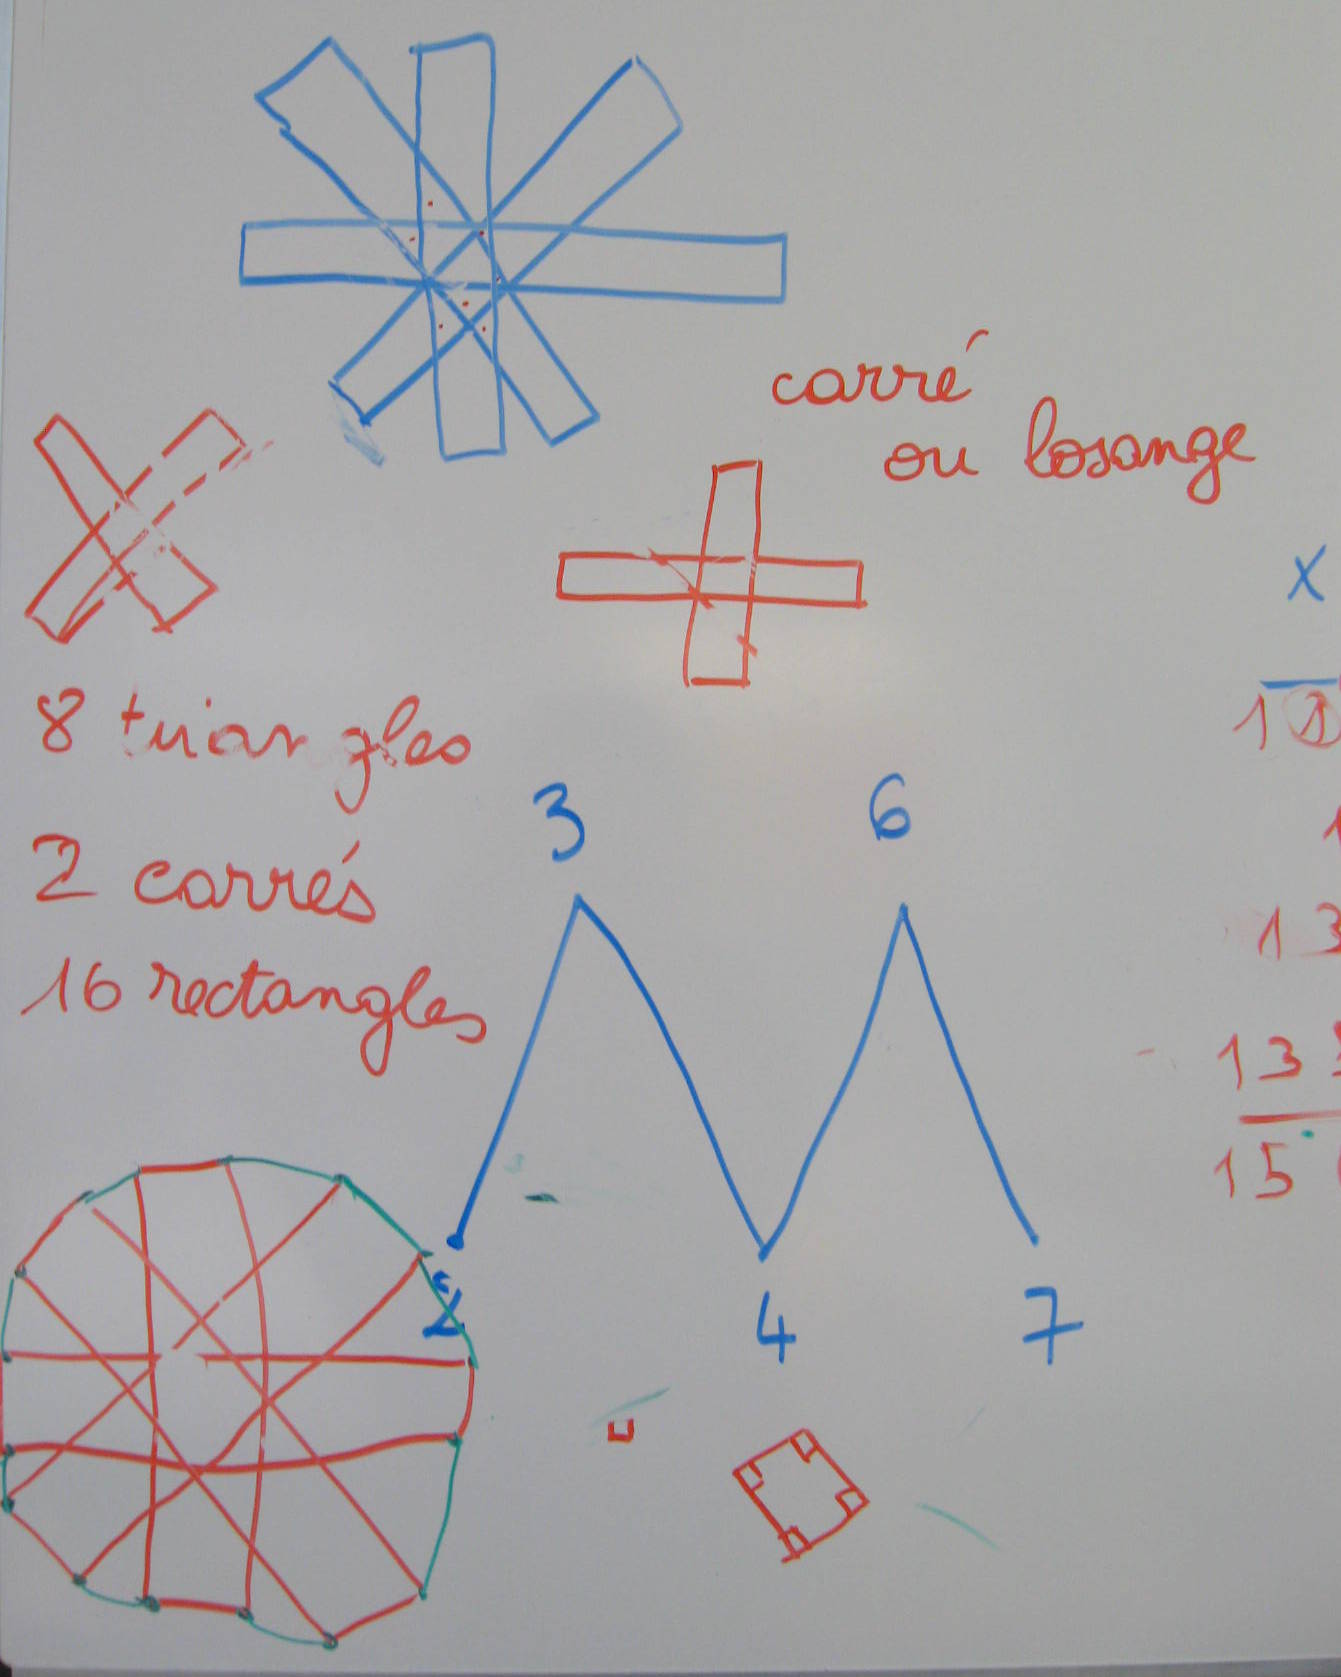 carré
ou losange
8 triangles
2 carrés
16 rectangles
3 6
2 4 7
x
1
13
13
15